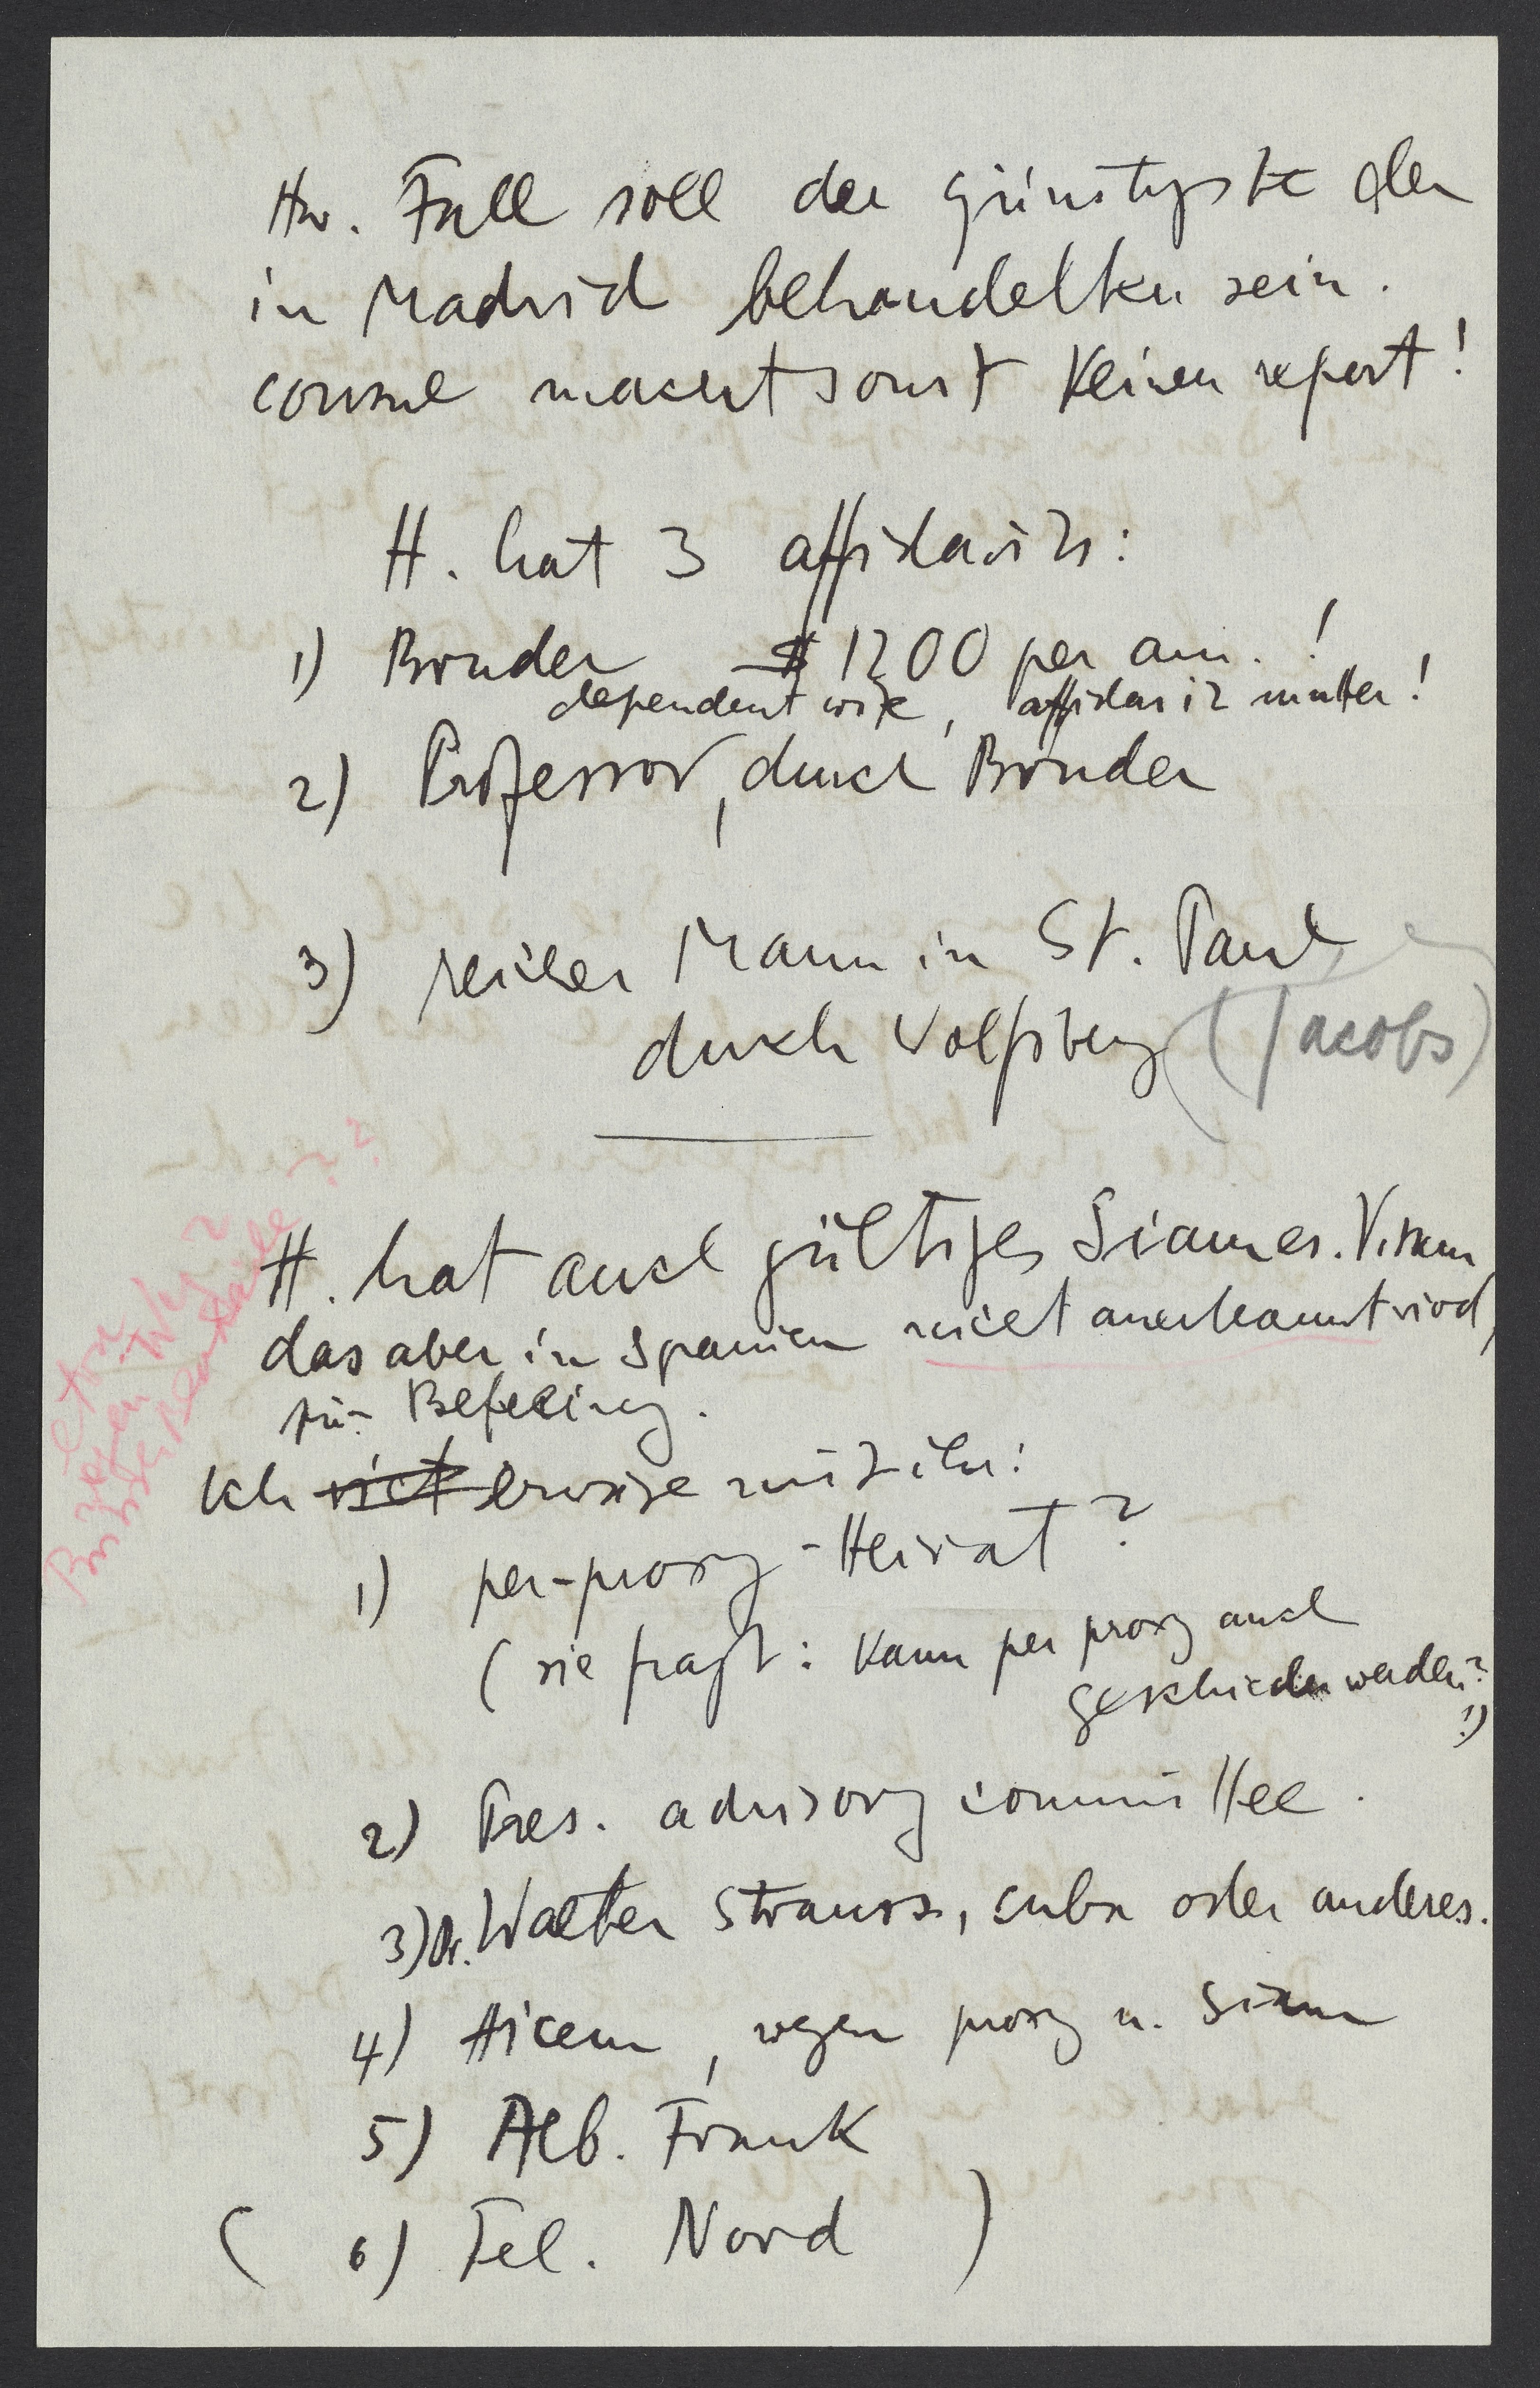 Hw. Fall soll der günstigste der
in Madrid behandelten sein.
consul macht sonst keinen report!
H. hat 3 affidavits:
1) Bruder $1200 per ann. !
dependent wife, affidavit mutter!
2) Professor, durch Bruder
3) reicher Mann in St. Paul
durch Wolfsberg (Jacobs)
H. hat auch gültiges Siames. Visum,
das aber in Spanien nicht anerkannt wird,
für Befreiung.
Ich erwäge mit ihr:
1) per-proxy-Heirat?
(sie fragt: kann per proxy auch
geschieden werden?
!)
2) Pres. advisory committee.
3) Dr. Walter Strauss, Cuba oder anderes.
4) Hicem, wegen proxy u. Siam
5) Alb. Frank
( 6) Tel. Nord )
etwa
gegen